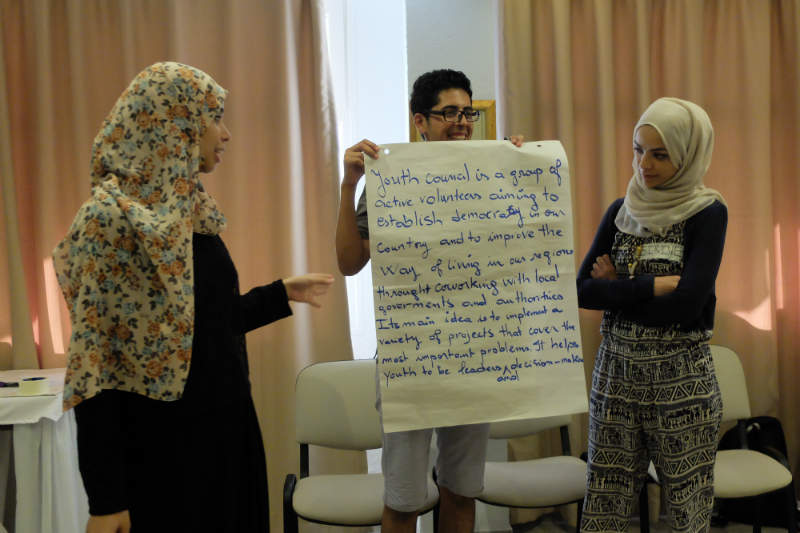 Youth Council is a group of
active volunteers aiming to
establish democratsy in our
Country and to improve the
Way of living in our regions
throught coworking with local
goverments and authorities
Its main idea is to implement a
variety of projects that cover the
most important problems. It helps
youth to be leaders and decision-makers